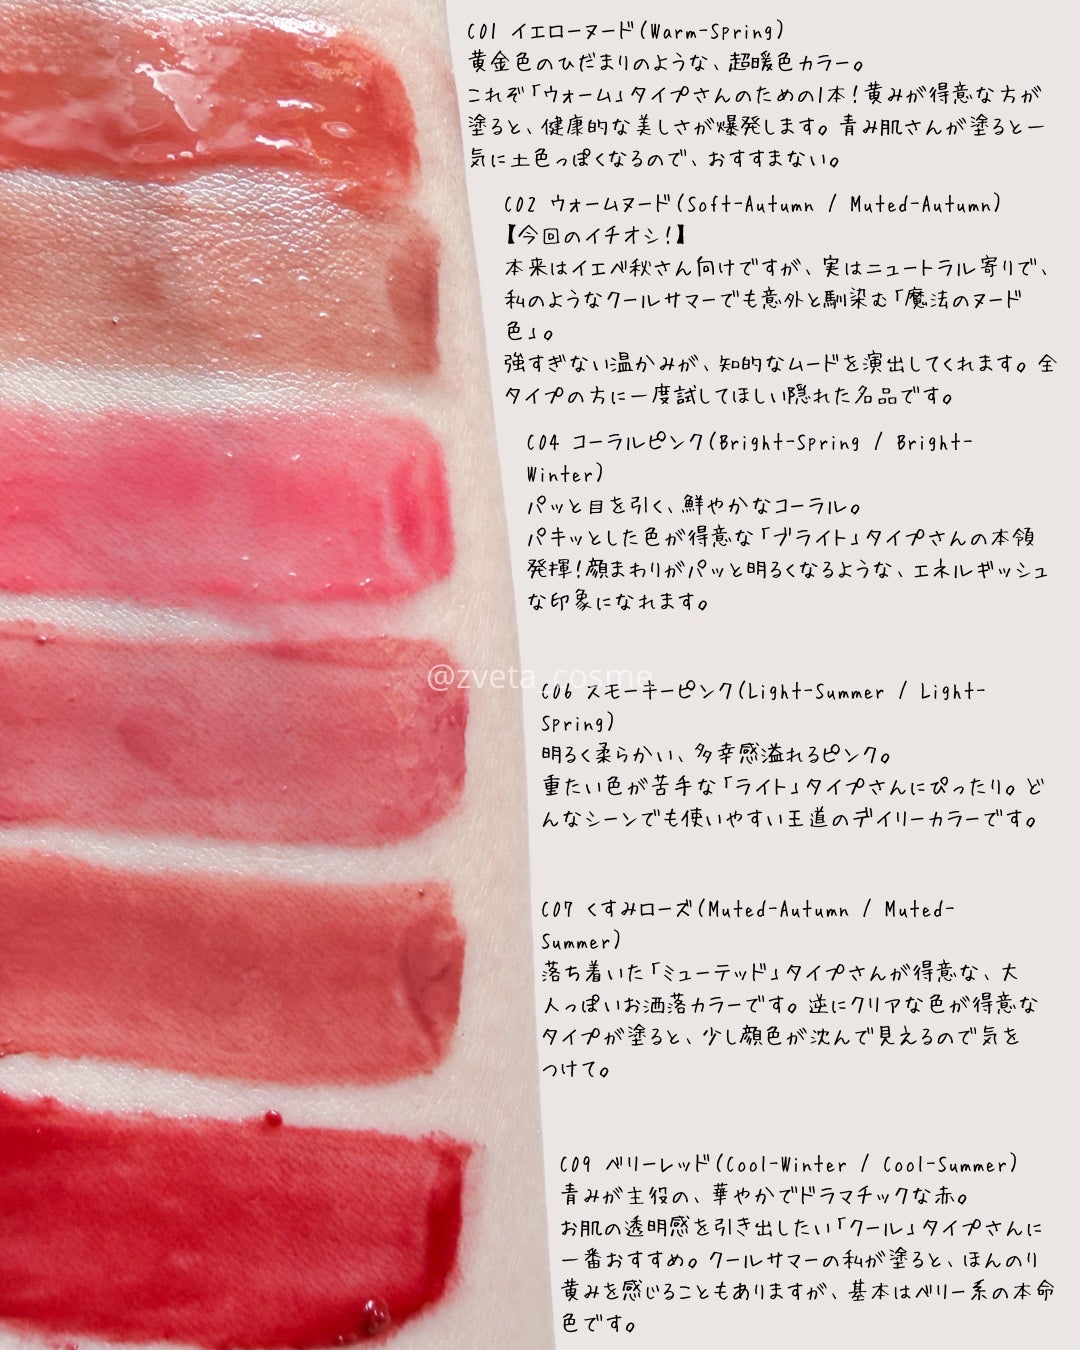 C01 イエローヌード(Warm-Spring)
黄金色のひだまりのような、超暖色カラー。
これぞ「ウォーム」タイプさんのための1本！黄みが得意な方が
塗ると、健康的な美しさが爆発します。青み肌さんが塗ると一
気に土色っぽくなるので、おすすまない。
C02 ウォームヌード(Soft-Autumn / Muted-Autumn)
【今回のイチオシ！】
本来はイエベ秋さん向けですが、実はニュートラル寄りで、
私のようなクールサマーでも意外と馴染む「魔法のヌード
色」。
強すぎない温かみが、知的なムードを演出してくれます。全
タイプの方に一度試してほしい隠れた名品です。
C04 コーラルピンク(Bright-Spring / Bright-
Winter)
パッと目を引く、鮮やかなコーラル。
パキッとした色が得意な「ブライト」タイプさんの本領
発揮！顔まわりがパッと明るくなるような、エネルギッシュ
な印象になれます。
@zveta_cosme
C06 スモーキーピンク(Light-Summer / Light-
Spring)
明るく柔らかい、多幸感溢れるピンク。
重たい色が苦手な「ライト」タイプさんにぴったり。ど
んなシーンでも使いやすい王道のデイリーカラーです。
C07 くすみローズ(Muted-Autumn / Muted-
Summer)
落ち着いた「ミューテッド」タイプさんが得意な、大
人っぽいお洒落カラーです。逆にクリアな色が得意な
タイプが塗ると、少し顔色が沈んで見えるので気を
つけて。
C09 ベリーレッド(Cool-Winter / Cool-Summer)
青みが主役の、華やかでドラマチックな赤。
お肌の透明感を引き出したい「クール」タイプさんに
一番おすすめ。クールサマーの私が塗ると、ほんのり
黄みを感じることもありますが、基本はベリー系の本命
色です。